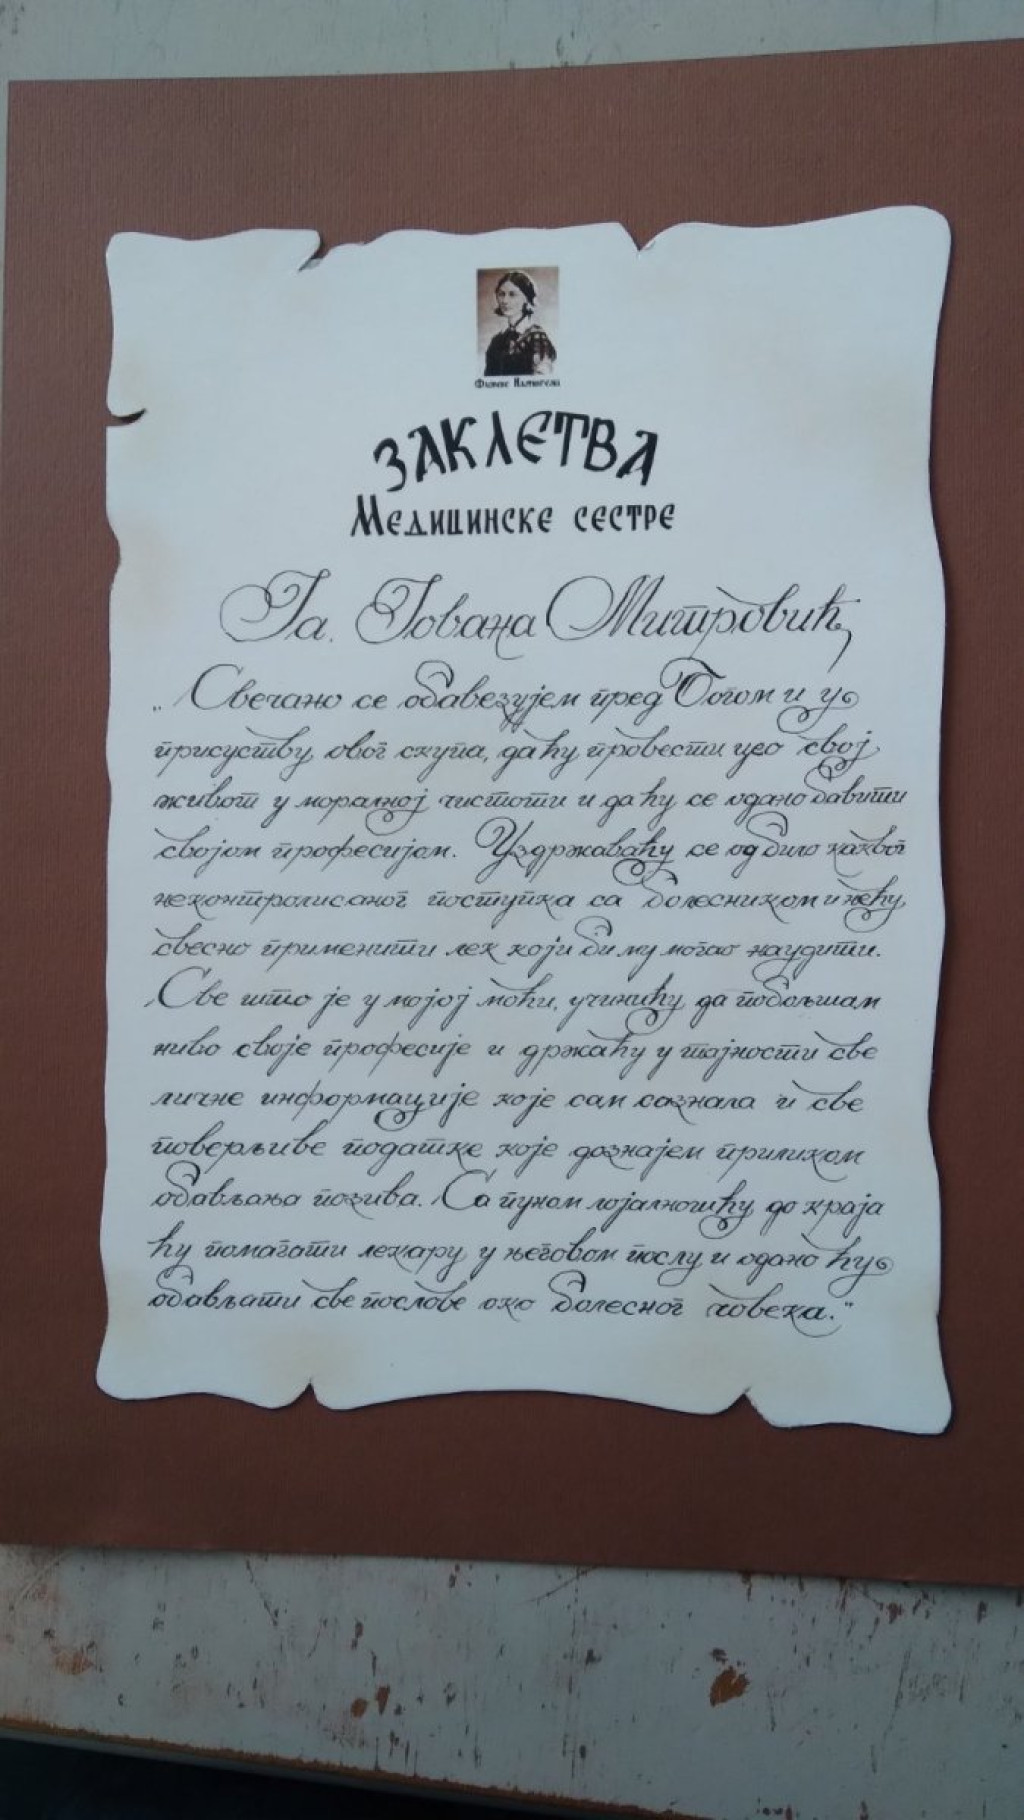 ЗАКЛЕТВА
Медицинске сестре
Ја, Јована Митровић,
„Свечано се обавезујем пред Богом и у
присуству овог скупа, да ћу провести цео свој
живот у моралној чистоти и да ћу се одано бавити
својом професијом. Уздржаваћу се од било каквог
неконтролисаног поступка са болесником и нећу
свесно применити лек који би му могао наудити.
Све што је у мојој моћи, учинићу да побољшам
ниво своје професије и држаћу у тајности све
личне информације које сам сазнала и све
поверљиве податке које дознајем приликом
обављања позива. Са пуном лојалношћу до краја
ћу помагати лекару у његовом послу и одано ћу
обављати све послове око болесног човека.“